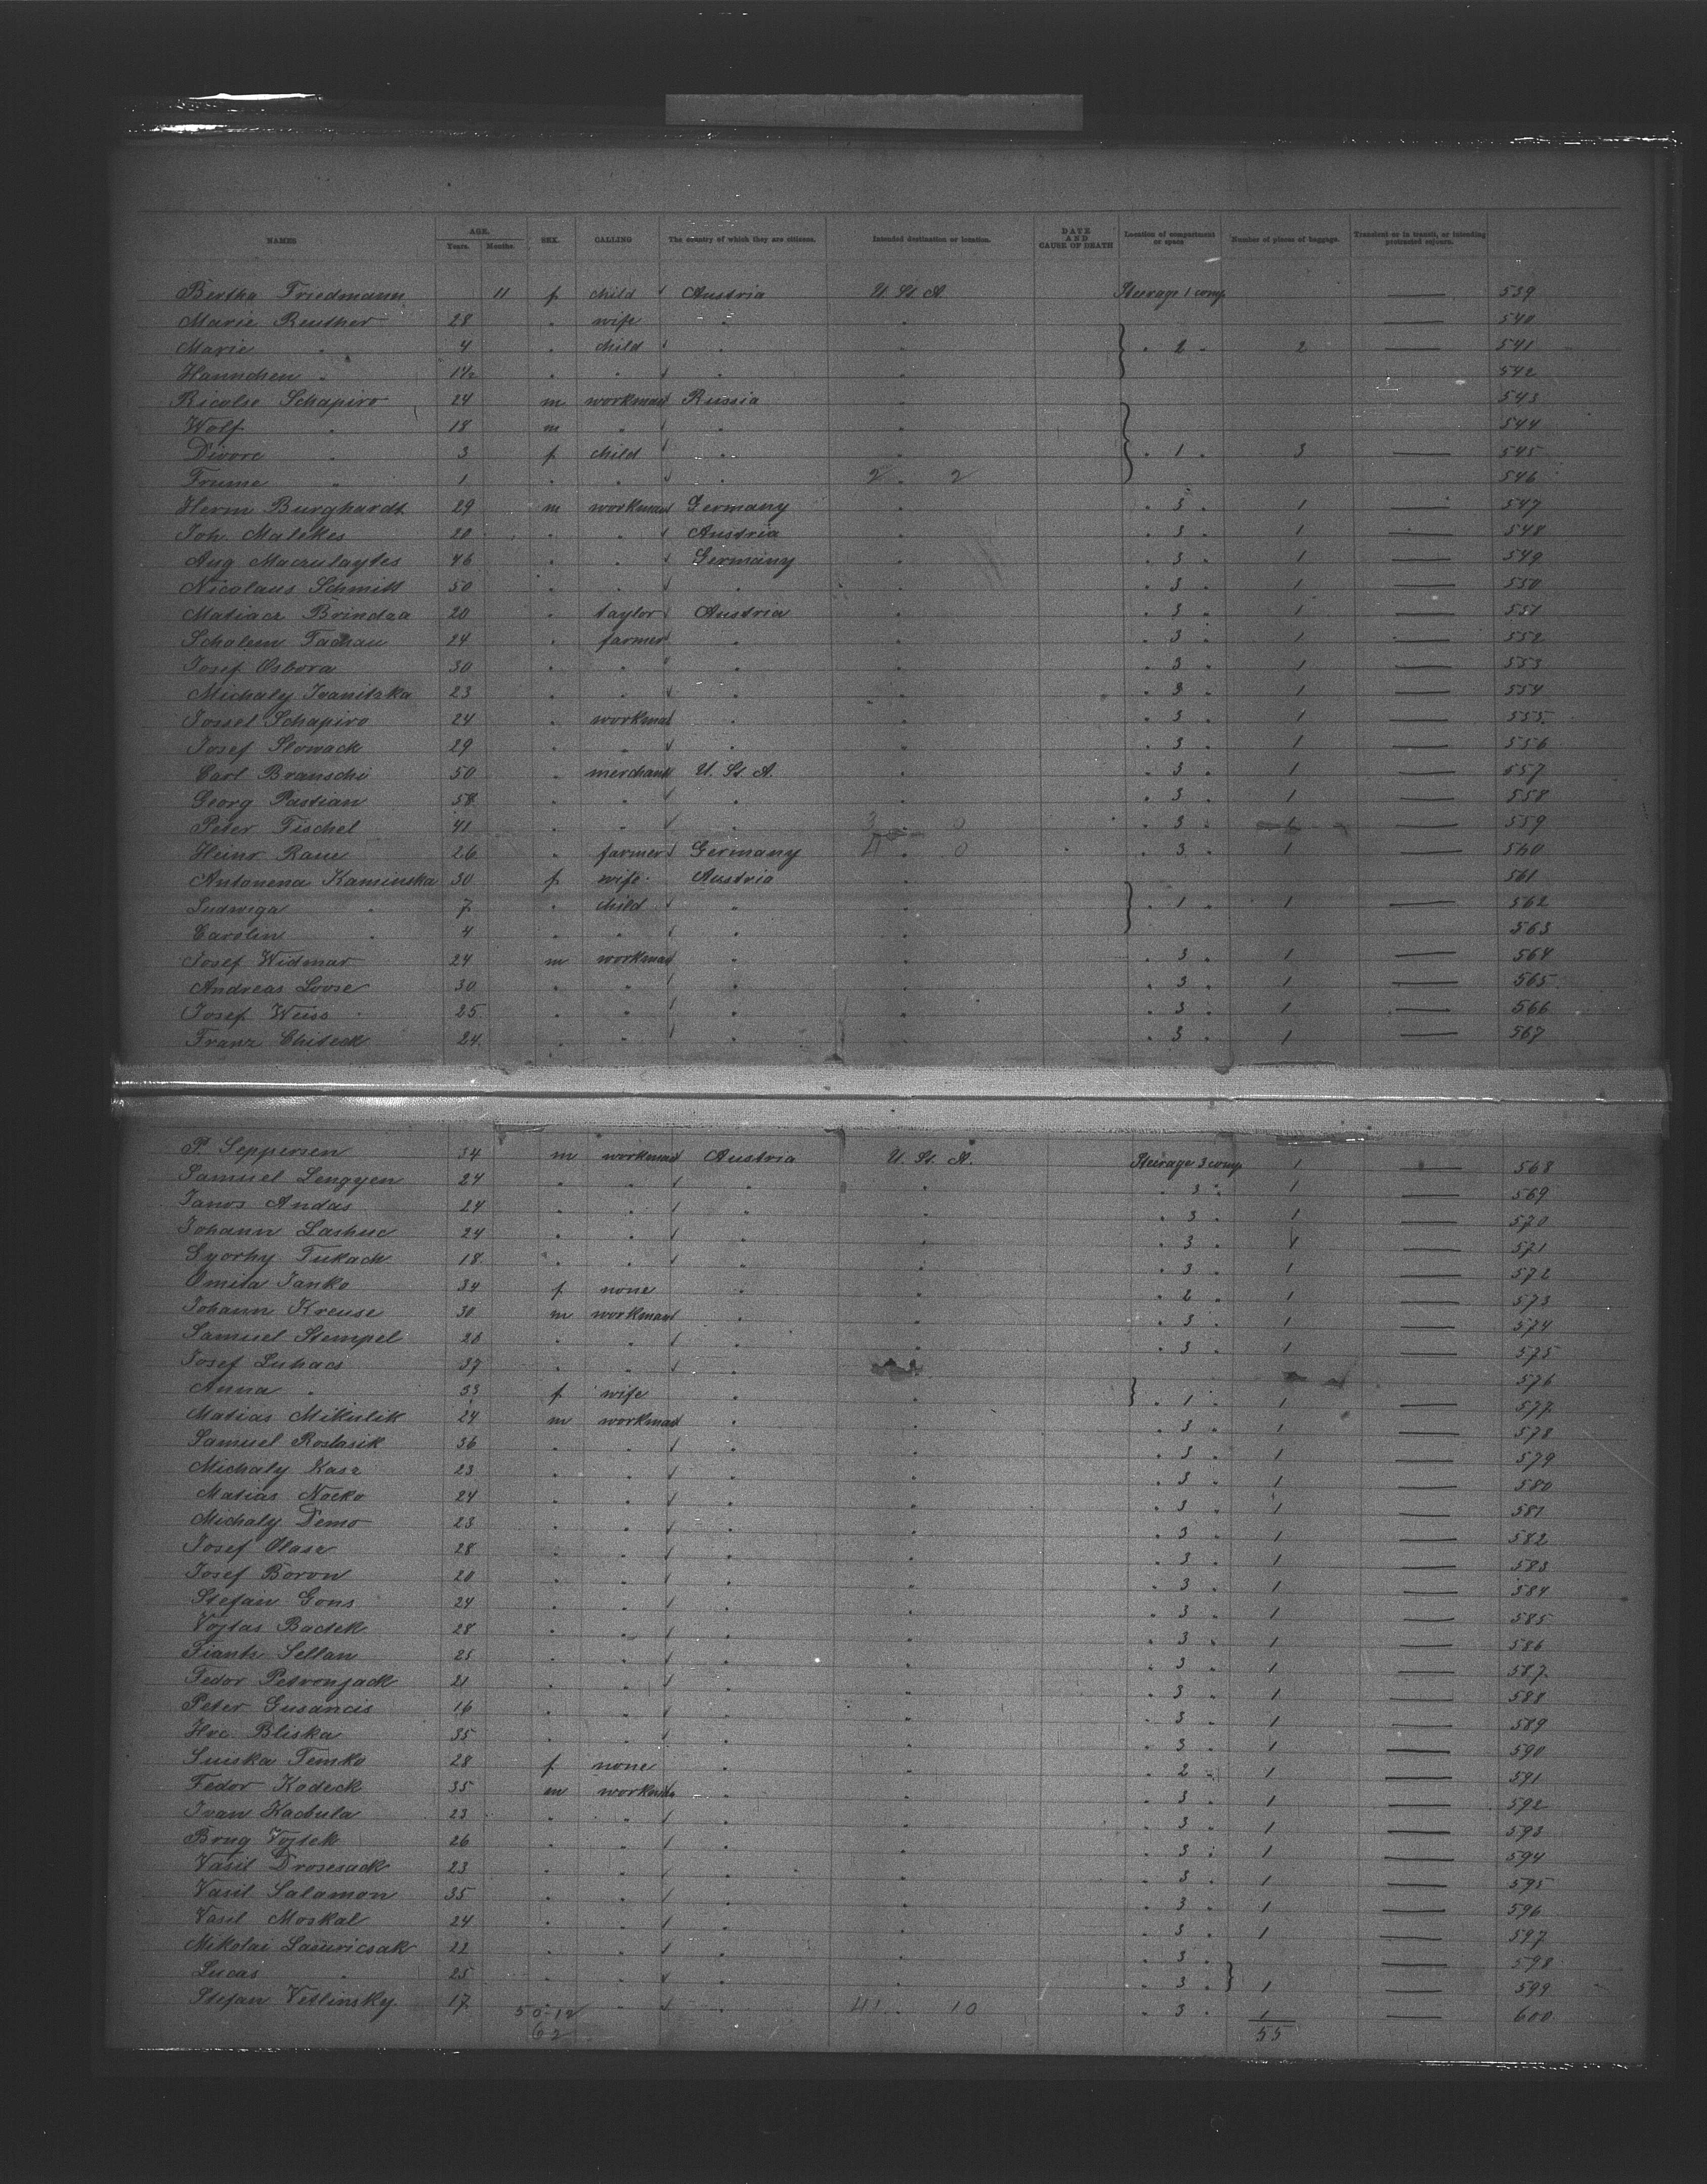 NAMES AGE. Years. Months. SEX. CALLING The country of which they are citizens. Intended destination or location. DATE AND CAUSE OF DEATH Location of compartment or space Number of pieces of baggage. Transient or in transit, or intending protracted sojourn.
Bertha Friedmann 11 f child Austria U. St. A. Steerage 1 comp. — 539
Marie Reuther 28 " wife " " — 540
Marie " 4 " child " " " 2 " 2 — 541
Hannchen " 1½ " " " " 542
Ricolse Schapiro 24 m workman Russia " 543
Wolf " 18 m " " " 544
Divore " 3 f child " " " 1 " 3 — 545
Frume " 1 " " " 2 " 2 546
Herm Burghardt 29 m workman Germany " " 3 " 1 — 547
Joh. Malekes 20 " " Austria " " 3 " 1 — 548
Aug Maczulaytes 46 " " Germany " " 3 " 1 — 549
Nicolaus Schmitt 50 " " " " " 3 " 1 — 550
Matiacz Brindza 20 " taylor Austria " " 3 " 1 — 551
Scholem Tachau 24 " farmer " " " 3 " 1 — 552
Josef Osbora 30 " " " " " 3 " 1 — 553
Michaly Ivanitzka 23 " " " " " 3 " 1 — 554
Jossel Schapiro 24 " workman " " " 3 " 1 — 555
Josef Slowack 29 " " " " " 3 " 1 — 556
Carl Branschi 50 " merchant U. St. A. " " 3 " 1 — 557
Georg Pastian 58 " " " " " 3 " 1 — 558
Peter Fischel 41 " " " 3 " 0 " 3 " 1 — 559
Heinr Rau 26 " farmer Germany " 0 " 3 " 1 — 560
Antonena Kaminska 30 f wife Austria " 561
Ludwiga " 7 " child " " " 1 " 1 — 562
Carolin " 4 " " " " 563
Josef Widmar 24 m workman " " " 3 " 1 — 564
Andreas Loose 30 " " " " " 3 " 1 — 565
Josef Weiss 25 " " " " " 3 " 1 — 566
Franz Chiteck 24 " " " " " 3 " 1 — 567
P. Seppersen 34 m workman Austria U. St. A. Steerage 3 comp. 1 — 568
Samuel Lengyen 24 " " " " " 3 " 1 — 569
Janos Andas 24 " " " " " 3 " 1 — 570
Johann Lashuc 24 " " " " " 3 " 1 — 571
Gyorhy Tukach 18 " " " " " 3 " 1 — 572
Omita Janko 34 f none " " " 2 " 1 — 573
Johann Kreuse 30 m workman " " " 3 " 1 — 574
Samuel Stempel 20 " " " " " 3 " 1 — 575
Josef Luhacs 37 " " " 576
Anna " 33 f wife " " " 1 " 1 — 577
Matias Mikulik 24 m workman " " " 3 " 1 — 578
Samuel Roslasik 36 " " " " " 3 " 1 — 579
Michaly Kasz 23 " " " " " 3 " 1 — 580
Matias Nocko 24 " " " " " 3 " 1 — 581
Michaly Demo 23 " " " " " 3 " 1 — 582
Josef Olasz 28 " " " " " 3 " 1 — 583
Josef Boron 20 " " " " " 3 " 1 — 584
Stefan Gons 24 " " " " " 3 " 1 — 585
Vojtas Badek 28 " " " " " 3 " 1 — 586
Sellan 25 " " " " " 3 " 1 — 587
Fedor Petronjack 21 " " " " " 3 " 1 — 588
Peter Gusancis 16 " " " " " 3 " 1 — 589
Hrc. Bliska 35 " " " " " 3 " 1 — 590
Suiska Temko 28 f none " " " 2 " 1 — 591
Fedor Kadeck 35 m workman " " " 3 " 1 — 592
Ivan Kachula 23 " " " " " 3 " 1 — 593
Brug Vojtek 26 " " " " " 3 " 1 — 594
Vasil Drosesack 23 " " " " " 3 " 1 — 595
Vasil Salamon 35 " " " " " 3 " 1 — 596
Vasil Moskal 24 " " " " " 3 " 1 — 597
Mikolai Lasuricsak 22 " " " " " 3 " — 598
Lucas " 25 " " " " " 3 " 1 — 599
Stefan Vetlinsky 17 " " " 41 " 10 " 3 " 1 — 600
50-12
62 55